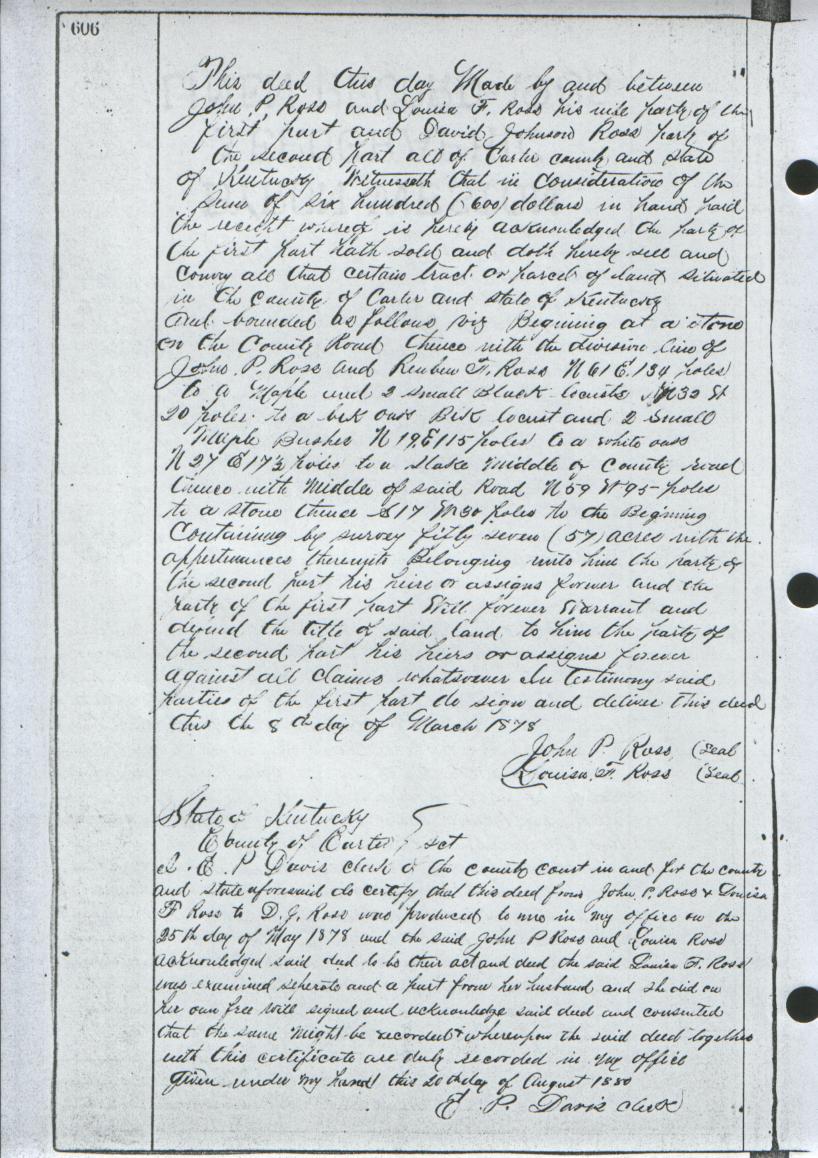 606
This deed this day Made by and between
John P. Ross and Louisa F. Ross his wife party of the
first part and David Johnson Ross party of
the second part all of Carter county and state
of Kentucky Witnesseth that in consideration of the
sum of six hundred (600) dollars in hand paid
the receipt whereof is hereby acknowledged the party of
the first part hath sold and doth hereby sell and
Convey all that certain tract or parcel of land situated
in the County of Carter and state of Kentucky
and bounded as follows viz Begining at a stone
on the County Road thence with the division line of
John P. Ross and Reuben F. Ross N 61 E 134 poles
to a Maple and 2 small Black locusts N 32 W
20 poles to a blk oak Blk locust and 2 small
Maple Bushes N 19 E 115 poles to a white oak
N 27 E 17½ poles to a stake middle of County road
thence with Middle of said Road N 59 W 95 poles
to a stone thence S 17 W 30 poles to the Begining
Containing by survey fifty seven (57) acres with the
appertinances thereunto Belonging unto him the party of
the second part his heirs or assigns forever and the
party of the first part Will forever Warrant and
defend the title of said land to him the party of
the second part his heirs or assigns forever
against all claims whatsoever In testimony said
parties of the first part do sign and deliver this deed
this the 8th day of March 1878
John P. Ross (Seal
Louisa F. Ross (Seal
State of Kentucky
County of Carter } sct
I. E. P Davis clerk of the county court in and for the county
and state aforesaid do certify that this deed from John P. Ross & Louisa
F Ross to D. J. Ross was produced to me in my office on the
25th day of May 1878 and the said John P Ross and Louisa Ross
acknowledged said deed to be their act and deed the said Louisa F. Ross
was examined seperate and a part from her husband and she did on
her own free will signed and acknowledge said deed and consented
that the same might be recorded & whereupon the said deed together
with this certificate are duly recorded in my office
Given under my hand this 20th day of August 1880
E P. Davis clerk